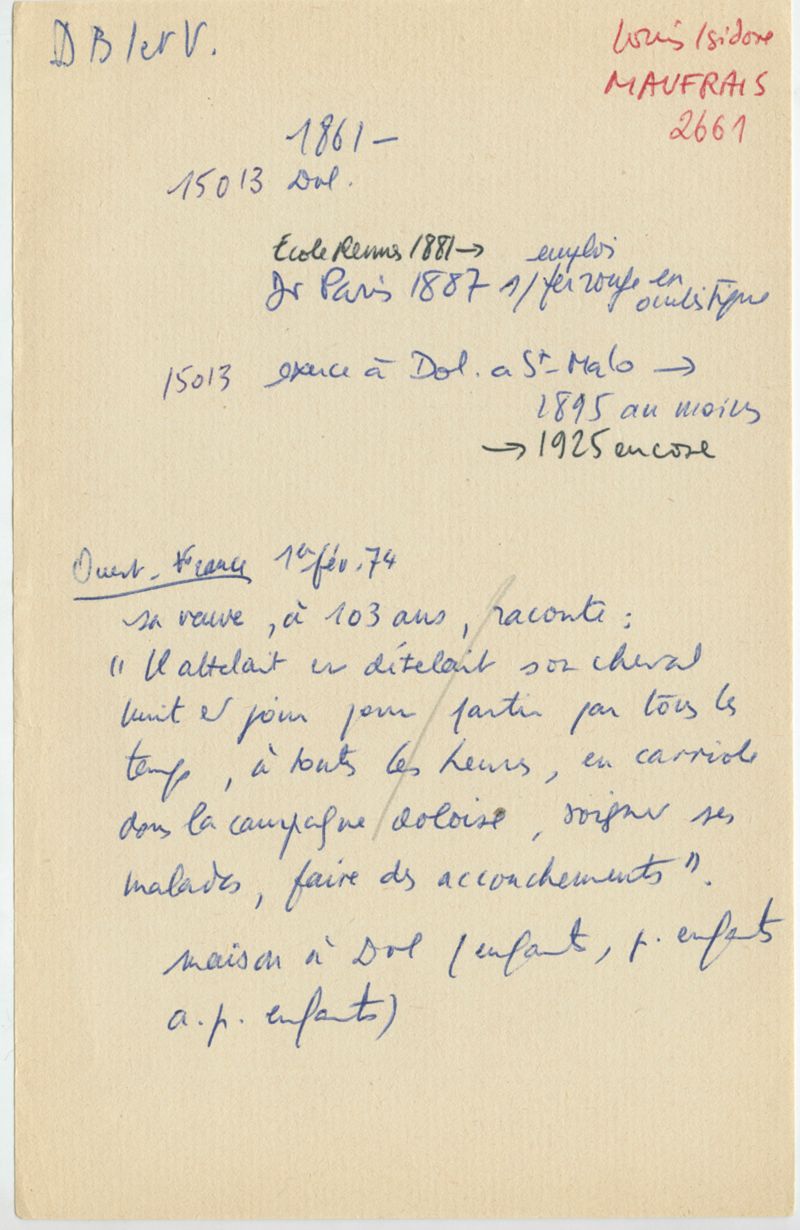 D B I et V.
Louis Isidore
MAUFRAIS
2661
1861 –
15013 Dol.
Ecole Rennes 1881 → emploi
Dr Paris 1887 s/ fer rouge en
oculistique
15013 exerce à Dol. a St-Malo →
1895 au moins
→ 1925 encore
Ouest-France 1er fév. 74
sa veuve, à 103 ans, raconte :
" Il attelait et dételait son cheval
nuit et jour pour partir par tous les
temps, à toutes les heures, en carriole
dans la campagne doloise, soigner ses
malades, faire des accouchements ".
maison à Dol (enfants, p. enfants
a. p. enfants)